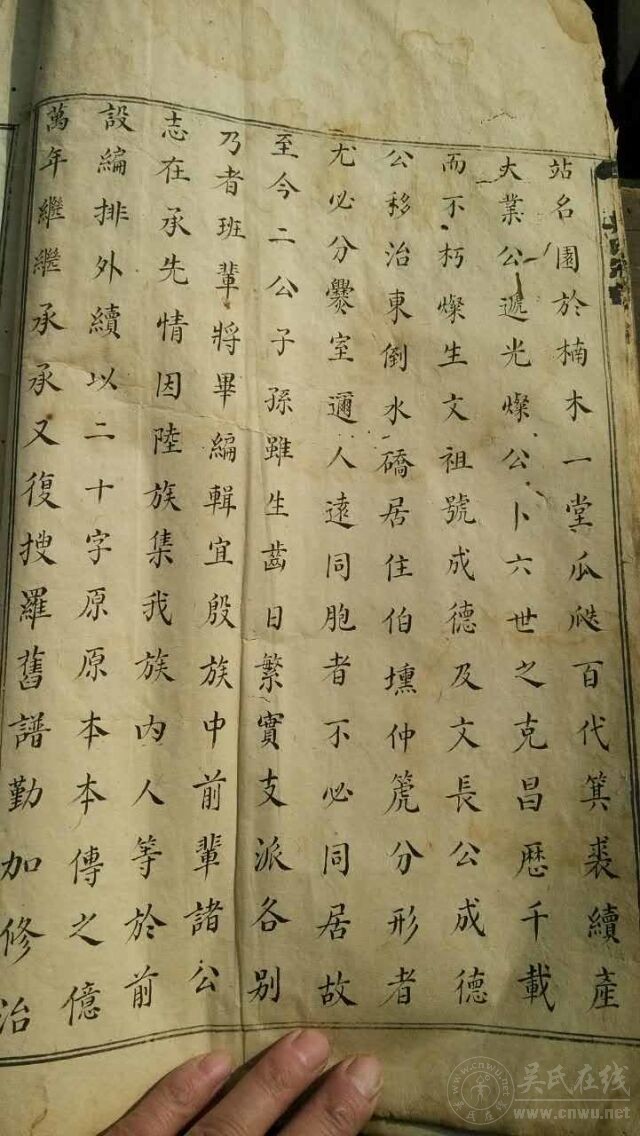 站名園於楠木一堂瓜瓞百代箕裘續產
大業公遞光燦公卜六世之克昌歷千載
而不朽燦生文祖號成德及文長公成德
公移治東倒水礄居住伯壎仲箎分形者
尤必分爨室邇人遠同胞者不必同居故
至今二公子孫雖生齒日繁實支派各別
乃者班輩將畢編輯宜殷族中前輩諸公
志在承先情因陸族集我族內人等於前
設編排外續以二十字原原本本傳之億
萬年繼繼承承又復搜羅舊譜勤加修治
吳氏在线
www.cnwu.net